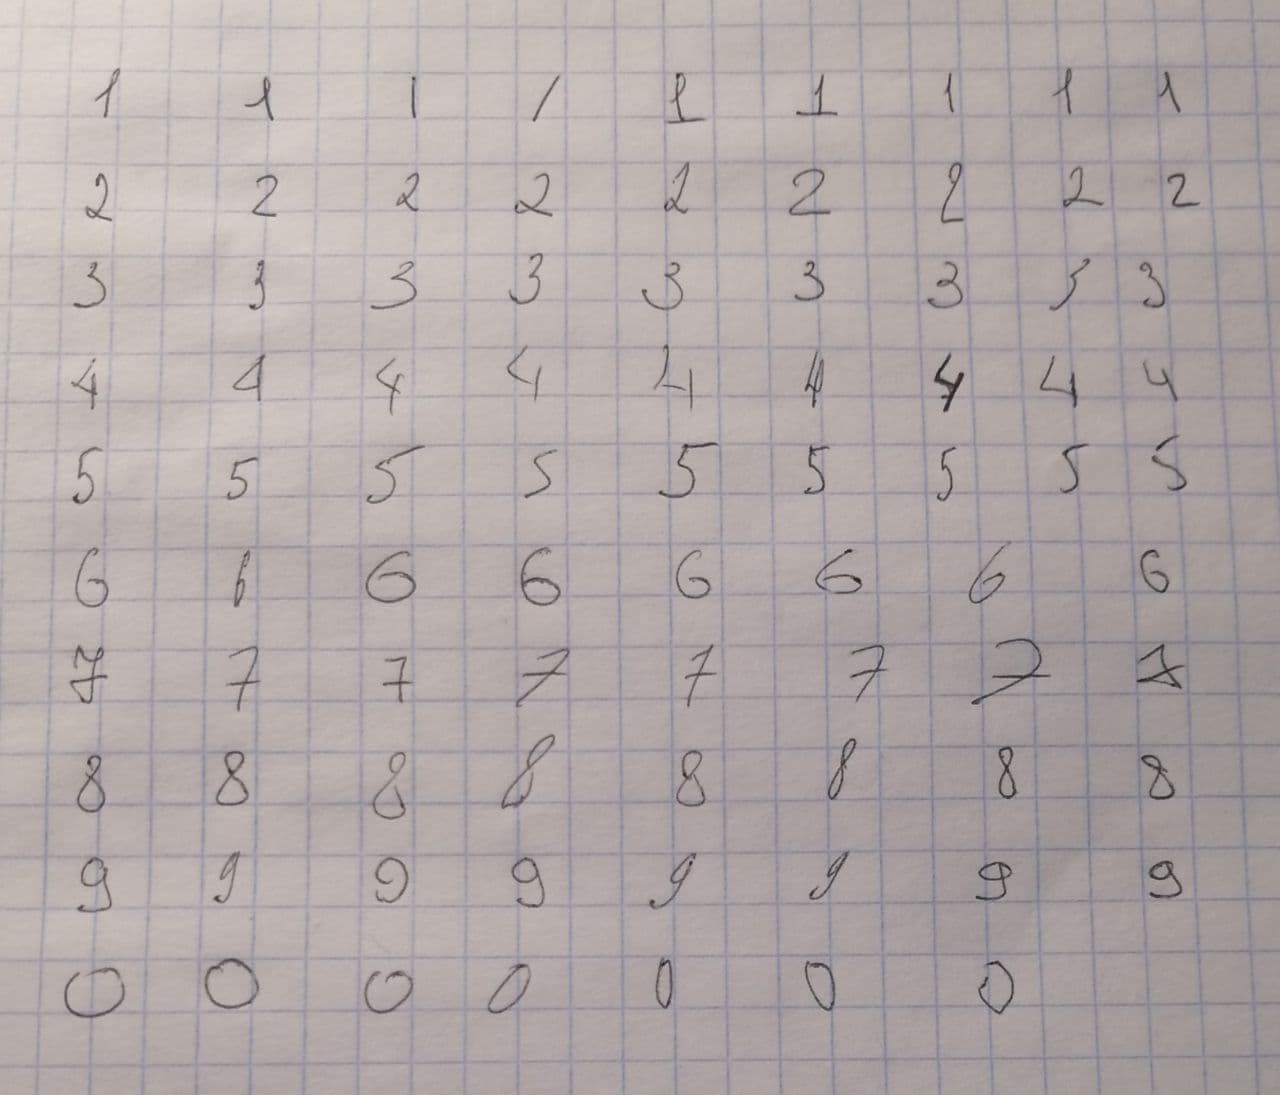 1 1 1 1 1 1 1 1 1
2 2 2 2 2 2 2 2 2
3 3 3 3 3 3 3 3 3
4 4 4 4 4 4 4 4 4
5 5 5 5 5 5 5 5 5
6 6 6 6 6 6 6 6
7 7 7 7 7 7 7 7
8 8 8 8 8 8 8 8
9 9 9 9 9 9 9 9
0 0 0 0 0 0 0